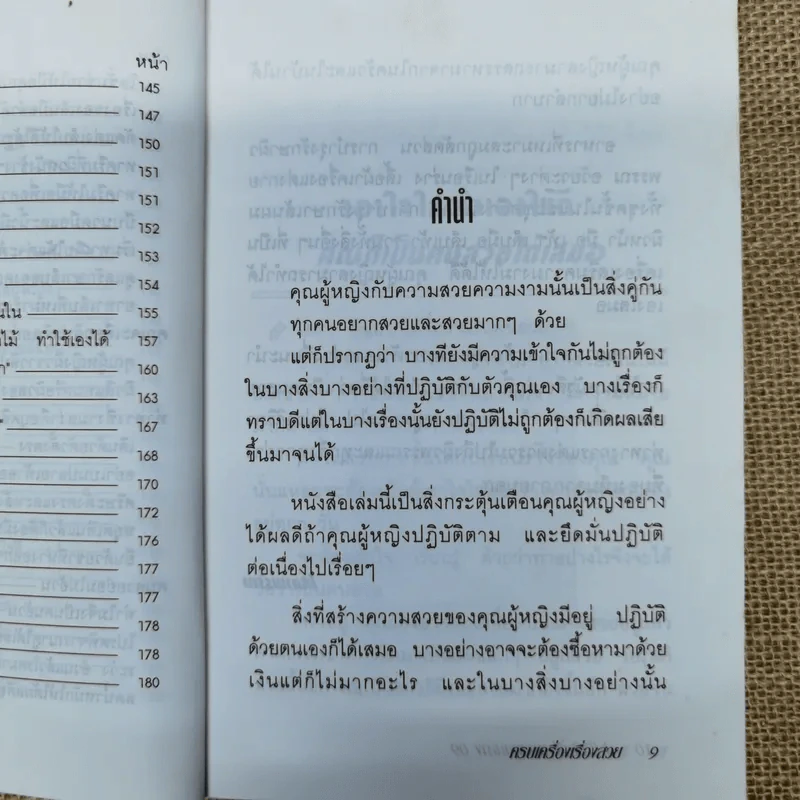 หน้า
145
147
150
151
151
152
153
154
155
ไม้ ทำใช้เองได้ 157
160
163
167
168
170
172
176
177
177
178
178
180
คำนำ
คุณผู้หญิงกับความสวยความงามนั้นเป็นสิ่งคู่กัน
ทุกคนอยากสวยและสวยมากๆ ด้วย
แต่ก็ปรากฏว่า บางทียังมีความเข้าใจกันไม่ถูกต้อง
ในบางสิ่งบางอย่างที่ปฏิบัติกับตัวคุณเอง บางเรื่องก็
ทราบดีแต่ในบางเรื่องนั้นยังปฏิบัติไม่ถูกต้องก็เกิดผลเสีย
ขึ้นมาจนได้
หนังสือเล่มนี้เป็นสิ่งกระตุ้นเตือนคุณผู้หญิงอย่าง
ได้ผลดีถ้าคุณผู้หญิงปฏิบัติตาม และยึดมั่นปฏิบัติ
ต่อเนื่องไปเรื่อยๆ
สิ่งที่สร้างความสวยของคุณผู้หญิงมีอยู่ ปฏิบัติ
ด้วยตนเองก็ได้เสมอ บางอย่างอาจจะต้องซื้อหามาด้วย
เงินแต่ก็ไม่มากอะไร และในบางสิ่งบางอย่างนั้น
ครบเครื่องเรื่องสวย 9